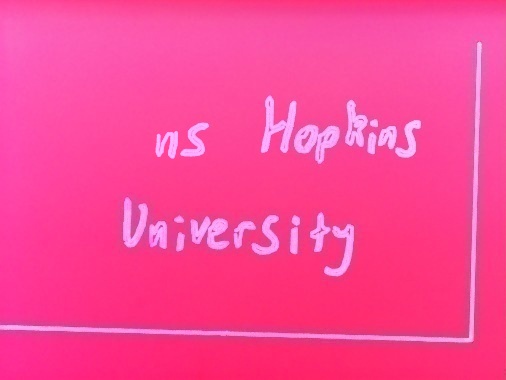 ns Hopkins
University